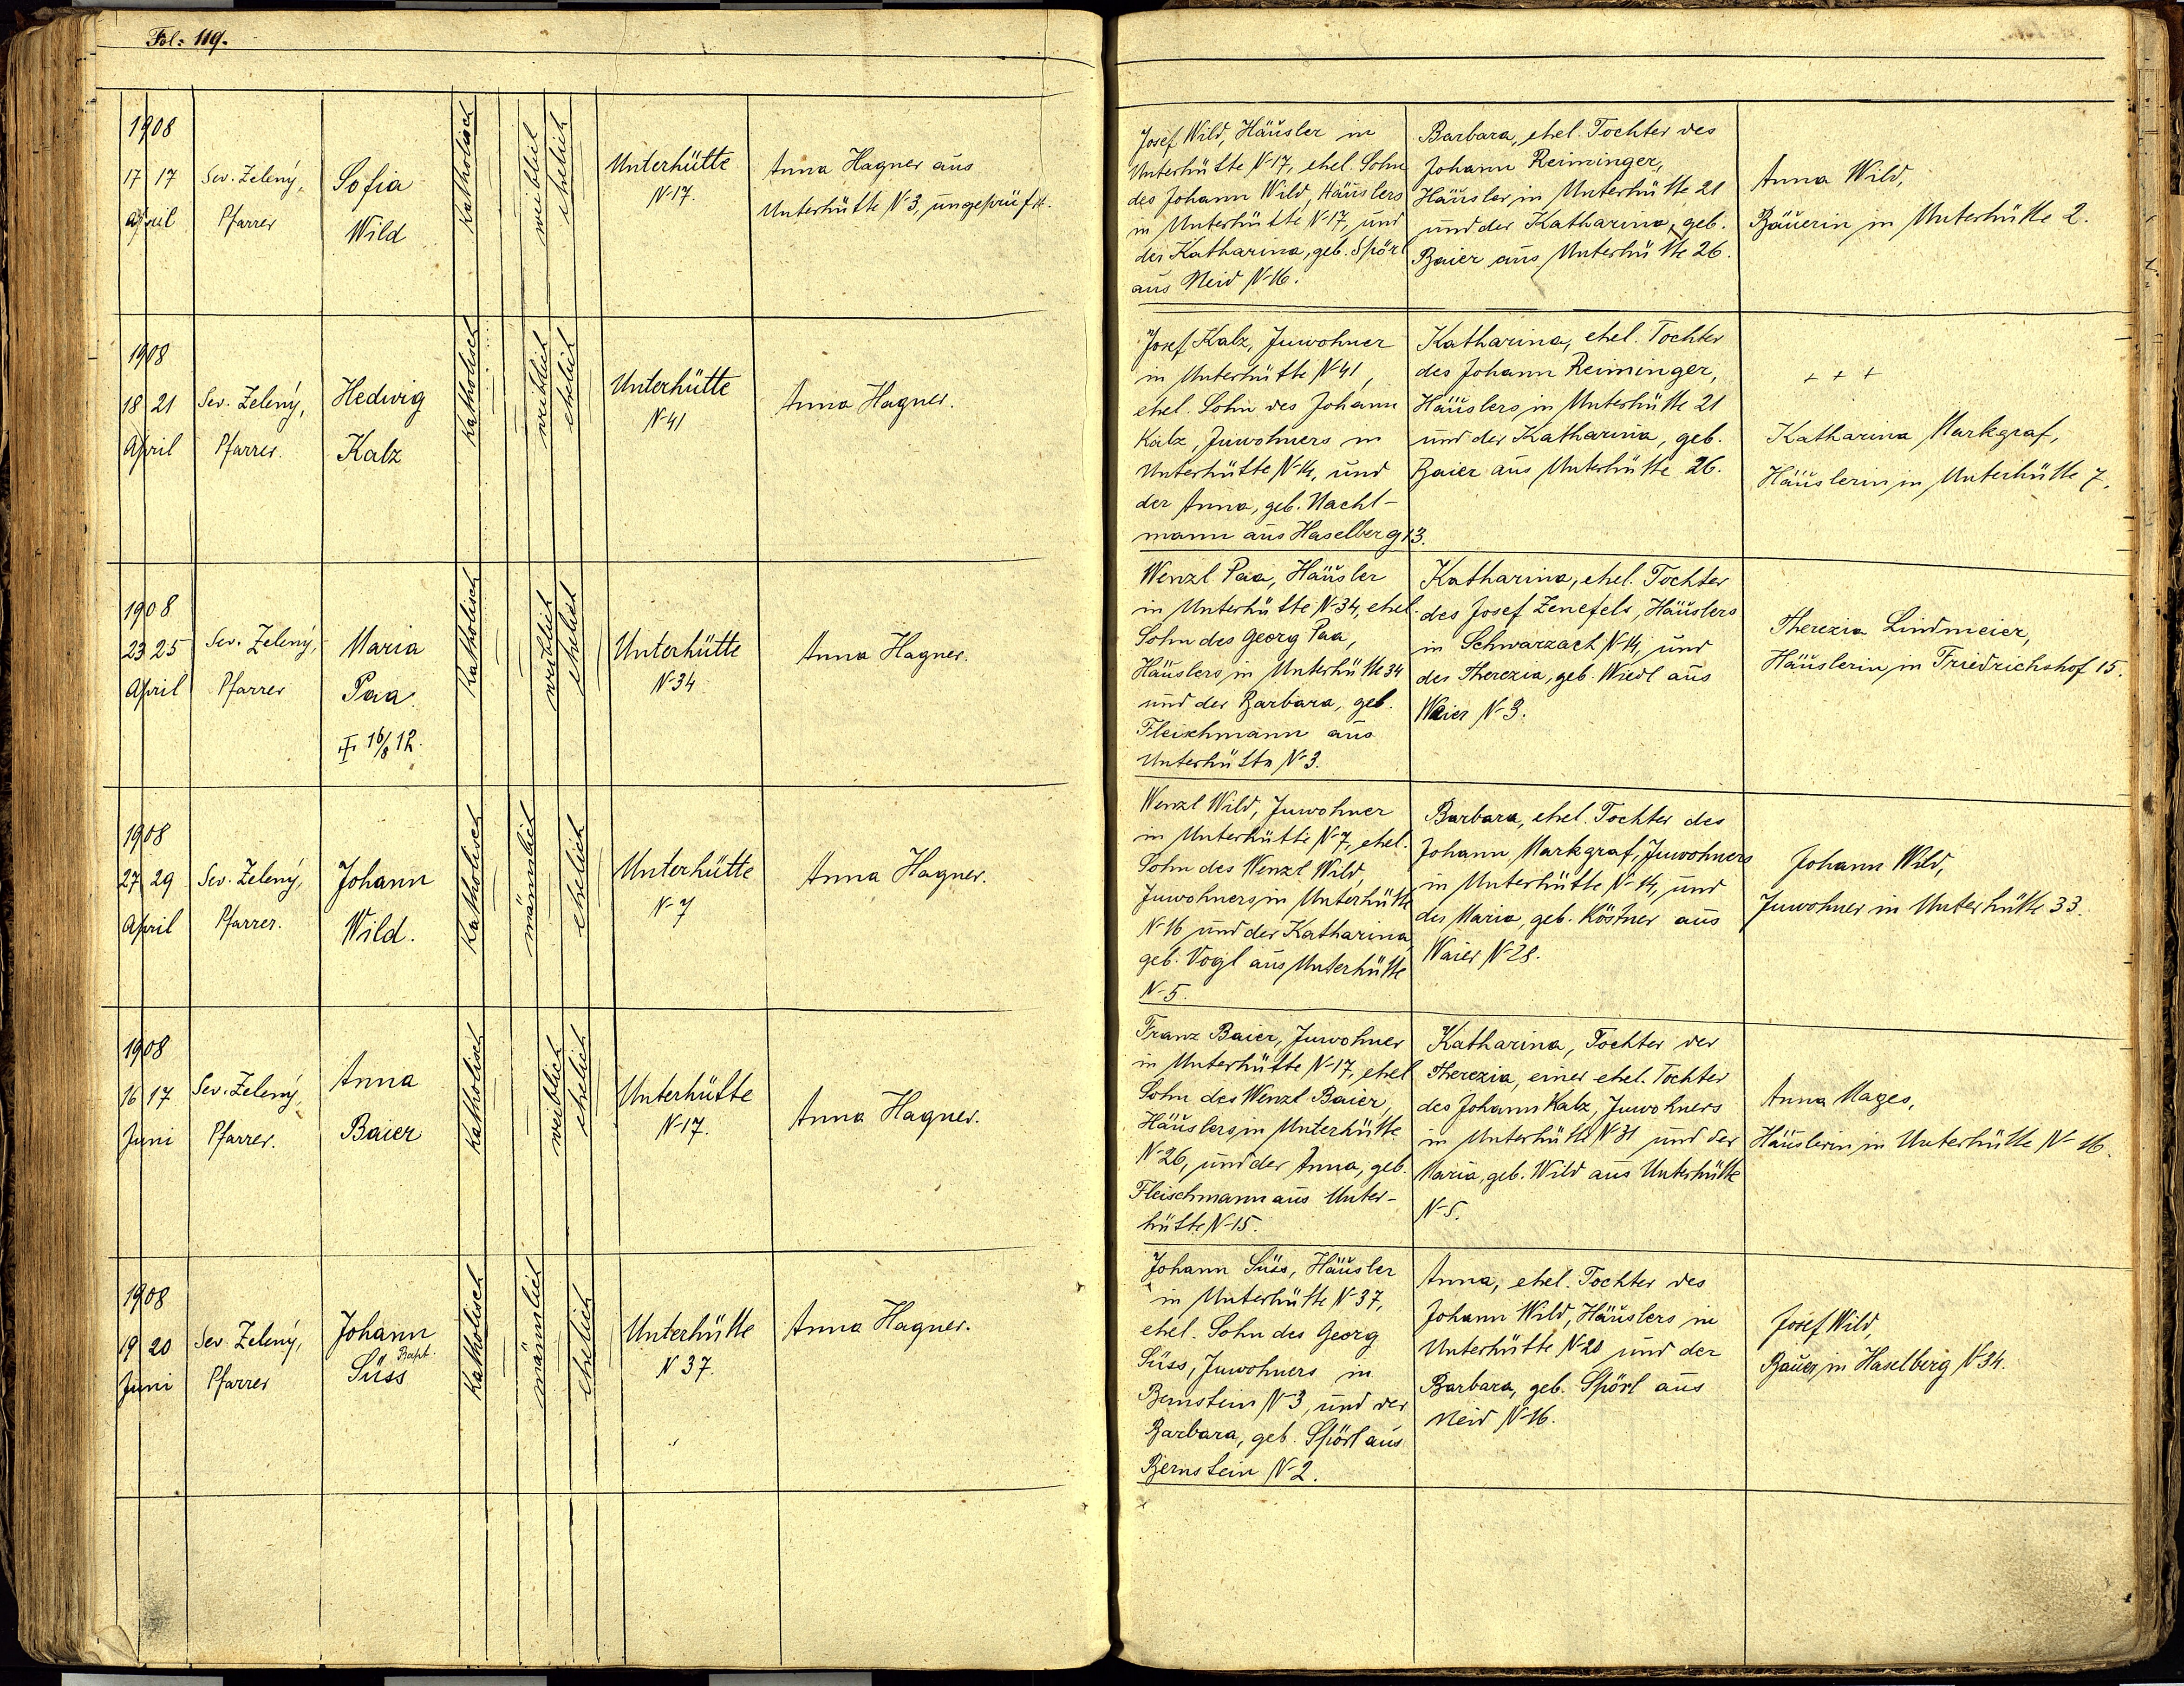 Fol: 119.
1908
17 17
April
Sev. Zelený,
Pfarrer
Sofia
Wild
Katholisch
weiblich
ehelich
Unterhütte
N-17.
Anna Hagner aus
Unterhütte N-3, ungeprüft.
Josef Wild, Häusler in
Unterhütte N-17, ehel. Sohn
des Johann Wild, Häuslers
in Unterhütte N-17, und
der Katharina, geb. Spörl
aus Neid N-16.
Barbara, ehel. Tochter des
Johann Reiminger,
Häusler in Unterhütte 21
und der Katharina, geb.
Baier aus Unterhütte 26.
Anna Wild,
Bäuerin in Unterhütte 2.
1908
18 21
April
Sev. Zelený,
Pfarrer.
Hedwig
Kalz
Katholisch
weiblich
ehelich
Unterhütte
N-41
Anna Hagner.
Josef Kalz, Inwohner
in Unterhütte N-41,
ehel. Sohn des Johann
Kalz, Inwohners in
Unterhütte N-14, und
der Anna, geb. Nacht-
mann aus Haselberg 13.
Katharina, ehel. Tochter
des Johann Reiminger,
Häuslers in Unterhütte 21
und der Katharina, geb.
Baier aus Unterhütte 26.
+ + +
Katharina Markgraf,
Häuslerin in Unterhütte 7.
1908
23 25
April
Sev. Zelený,
Pfarrer
Maria
Paa.
† 16/8 12.
Katholisch
weiblich
ehelich
Unterhütte
N-34
Anna Hagner.
Wenzl Paa, Häusler
in Unterhütte N-34, ehel.
Sohn des Georg Paa,
Häuslers in Unterhütte 34
und der Barbara, geb.
Fleischmann aus
Unterhütte N-3.
Katharina, ehel. Tochter
des Josef Zenefels, Häuslers
in Schwarzach N-14, und
der Therezia, geb. Wiedl aus
Waier N-3.
Therezia Lindmeier,
Häuslerin in Friedrichshof 15.
1908
27 29
April
Sev. Zelený,
Pfarrer.
Johann
Wild.
Katholisch
männlich
ehelich
Unterhütte
N-7
Anna Hagner.
Wenzl Wild, Inwohner
in Unterhütte N-7, ehel.
Sohn des Wenzl Wild,
Inwohners in Unterhütte
N-16 und der Katharina,
geb. Vogl aus Unterhütte
N-5.
Barbara, ehel. Tochter des
Johann Markgraf, Inwohners
in Unterhütte N-14, und
der Maria, geb. Köstner aus
Waier N-28.
Johann Wild,
Inwohner in Unterhütte 33.
1908
16 17
Juni
Sev. Zelený,
Pfarrer.
Anna
Baier
Katholisch
weiblich
ehelich
Unterhütte
N-17.
Anna Hagner.
Franz Baier, Inwohner
in Unterhütte N-17, ehel
Sohn des Wenzl Baier,
Häuslers in Unterhütte
N-26, und der Anna, geb.
Fleischmann aus Unter-
hütte N-15.
Katharina, Tochter der
Therezia, einer ehel. Tochter
des Johann Kalz, Inwohners
in Unterhütte N-31 und der
Maria, geb. Wild aus Unterhütte
N-5.
Anna Mages,
Häuslerin in Unterhütte N-16.
1908
19 20
Juni
Sev. Zelený,
Pfarrer
Johann
Bapt.
Süss
Katholisch
männlich
ehelich
Unterhütte
N 37.
Anna Hagner.
Johann Süss, Häusler
in Unterhütte N-37,
ehel. Sohn des Georg
Süss, Inwohners in
Bernstein N-3, und der
Barbara, geb. Spörl aus
Bernstein N-2.
Anna, ehel. Tochter des
Johann Wild, Häuslers in
Unterhütte N-20 und der
Barbara, geb. Spörl aus
Neid N-16.
Josef Wild,
Bauer in Haselberg N-34.